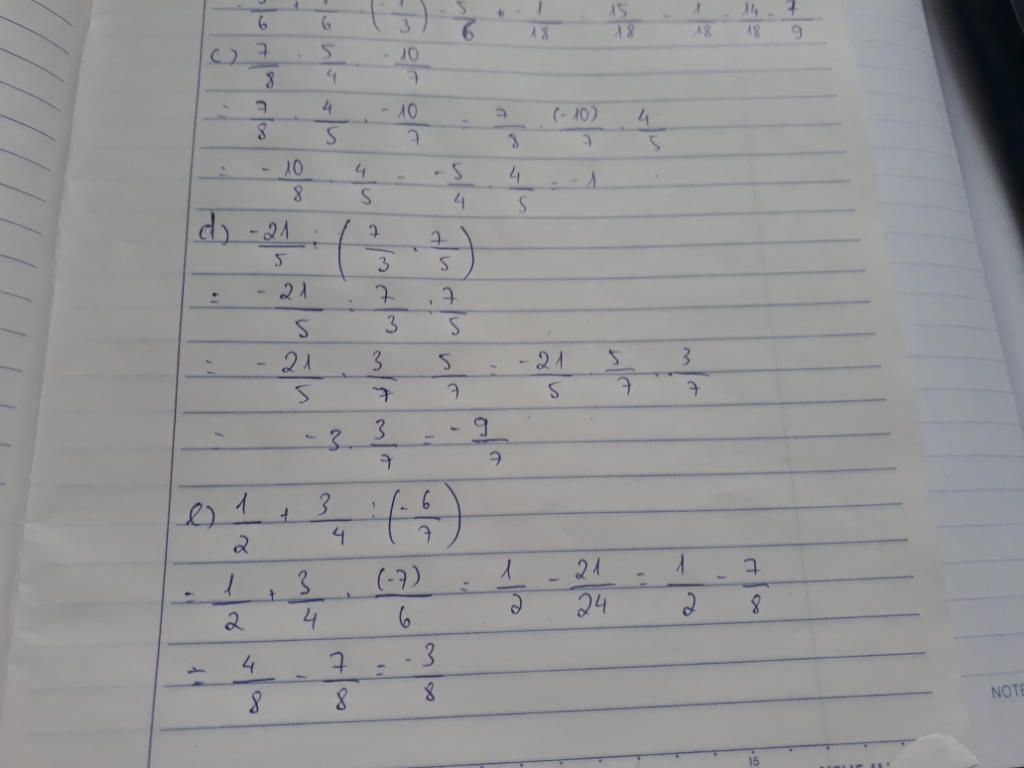 5/6 + 1/6 · (-1/3) = 5/6 + -1/18 = 15/18 - 1/18 = 14/18 = 7/9
c) 7/8 · 5/4 · -10/7
= 7/8 · 4/5 · -10/7 = 7/8 · (-10)/7 · 4/5
= -10/8 · 4/5 = -5/4 · 4/5 = -1
d) -21/5 : (7/3 · 7/5)
= -21/5 : 7/3 : 7/5
= -21/5 · 3/7 · 5/7 = -21/5 · 5/7 · 3/7
= -3 · 3/7 = -9/7
e) 1/2 + 3/4 : (-6/7)
= 1/2 + 3/4 · (-7)/6 = 1/2 - 21/24 = 1/2 - 7/8
= 4/8 - 7/8 = -3/8
NOTE
15